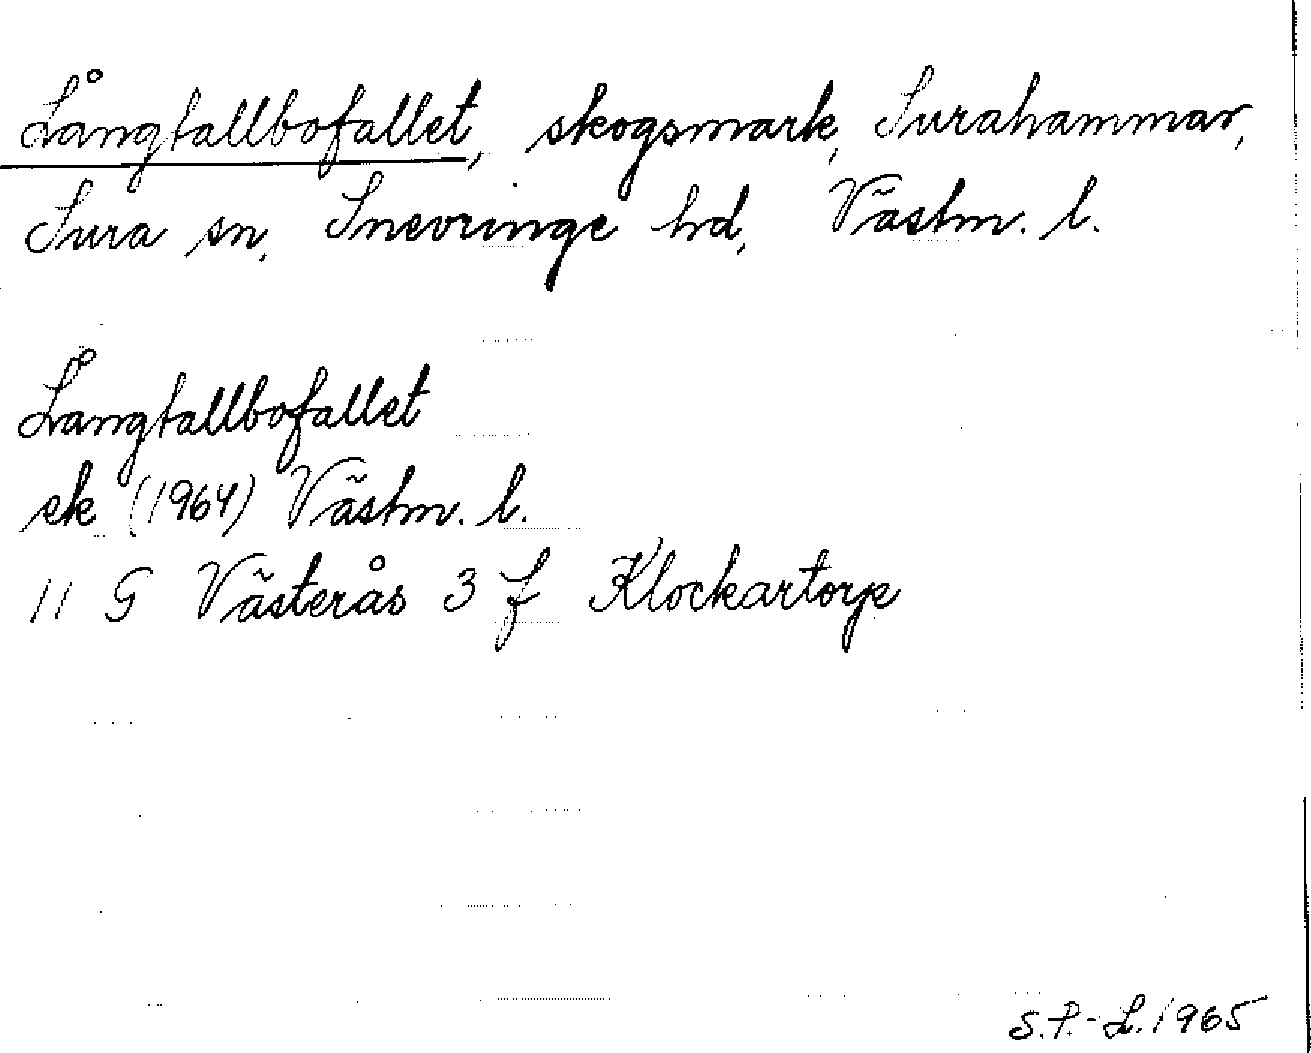 Långtallbofallet, skogsmark, Surahammar,
Sura sn, Snevringe hd, Västm. l.
Långtallbofallet
sk (1964) Västm. l.
11 G Västerås 3 f Klockartorp
S.P.-L. 1965